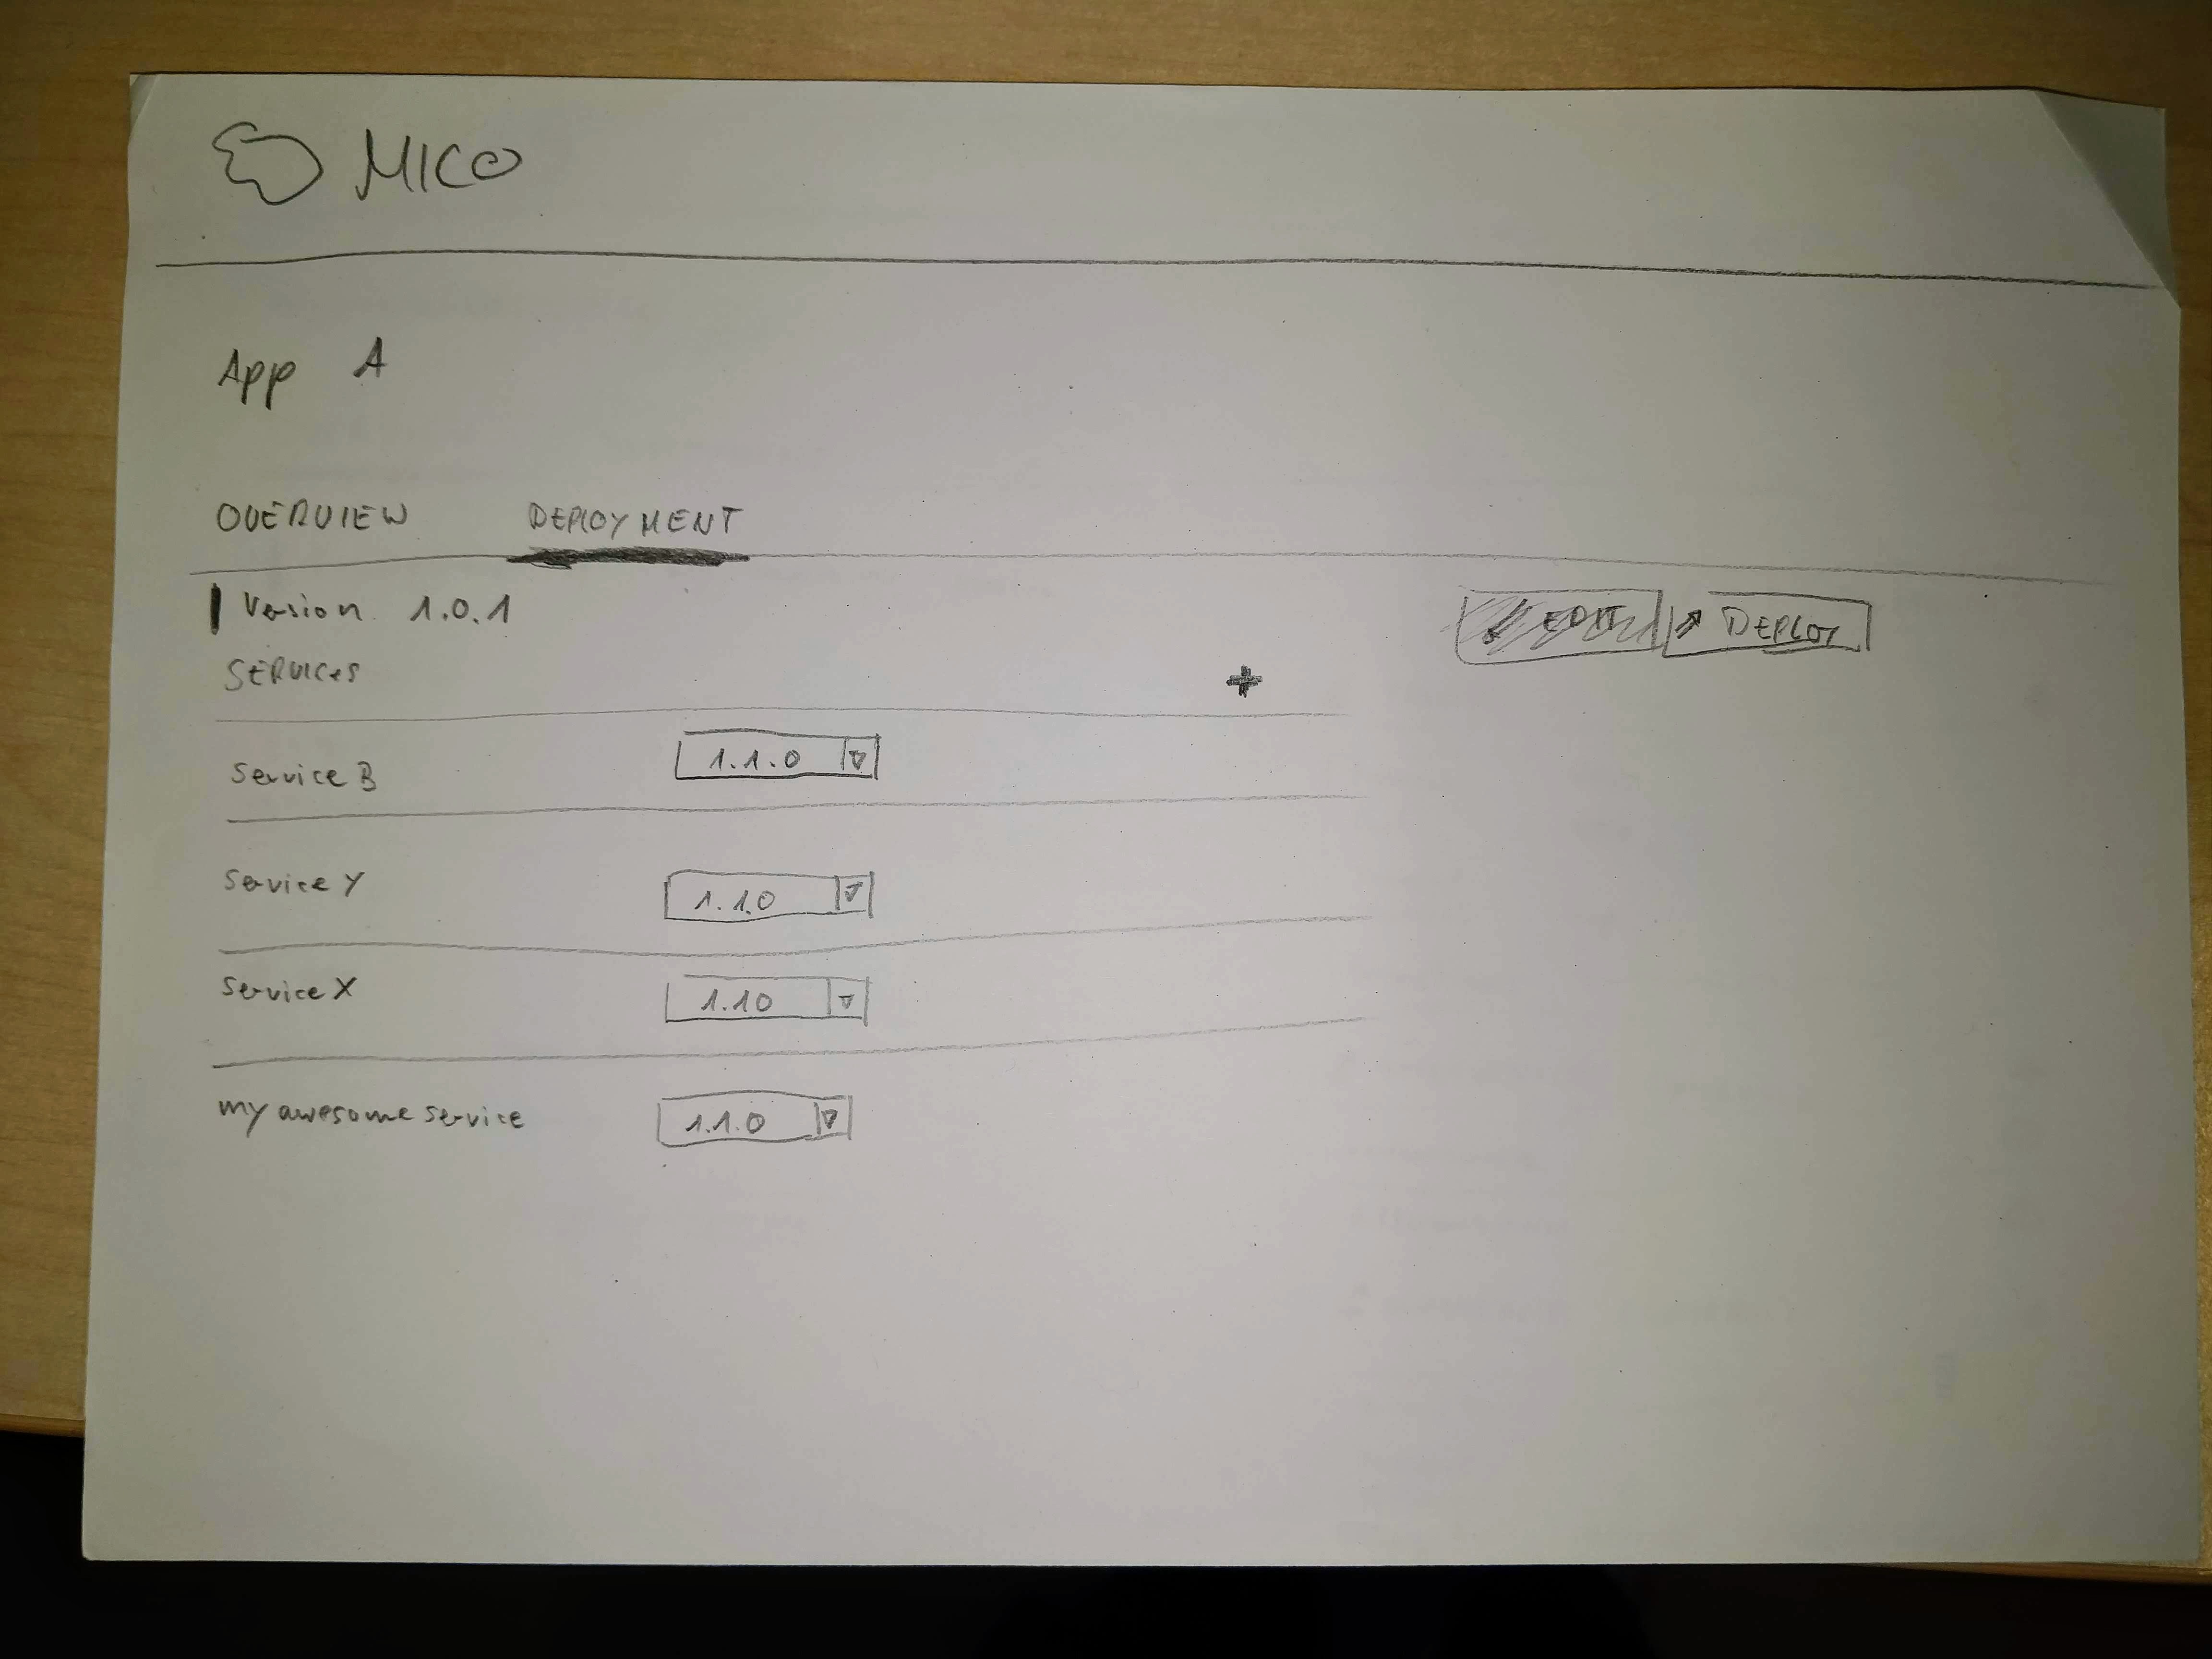 MICO
App A
OVERVIEW DEPLOYMENT
Version 1.0.1
EDIT DEPLOY
SERVICES +
Service B 1.1.0
Service Y 1.1.0
Service X 1.10
my awesome service 1.1.0